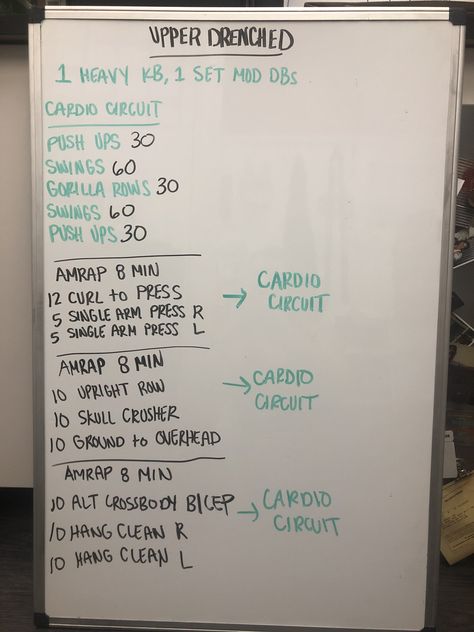 UPPER DRENCHED
1 HEAVY KB, 1 SET MOD DBs
CARDIO CIRCUIT
PUSH UPS 30
SWINGS 60
GORILLA ROWS 30
SWINGS 60
PUSH UPS 30
AMRAP 8 MIN
12 CURL to PRESS
5 SINGLE ARM PRESS R
5 SINGLE ARM PRESS L
→ CARDIO
CIRCUIT
AMRAP 8 MIN
10 UPRIGHT ROW
10 SKULL CRUSHER
10 GROUND to OVERHEAD
→ CARDIO
CIRCUIT
AMRAP 8 MIN
10 ALT CROSSBODY BICEP
10 HANG CLEAN R
10 HANG CLEAN L
→ CARDIO
CIRCUIT